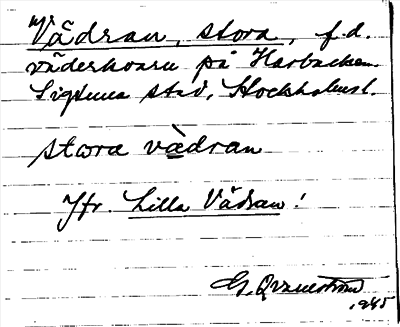 Vädran, stora, f.d.
väderkvarn på Harbacken
Sigtuna stad, Stockholmsl.
stora vädran
Jfr. Lilla Vädran!
G. Qvarnström
1945